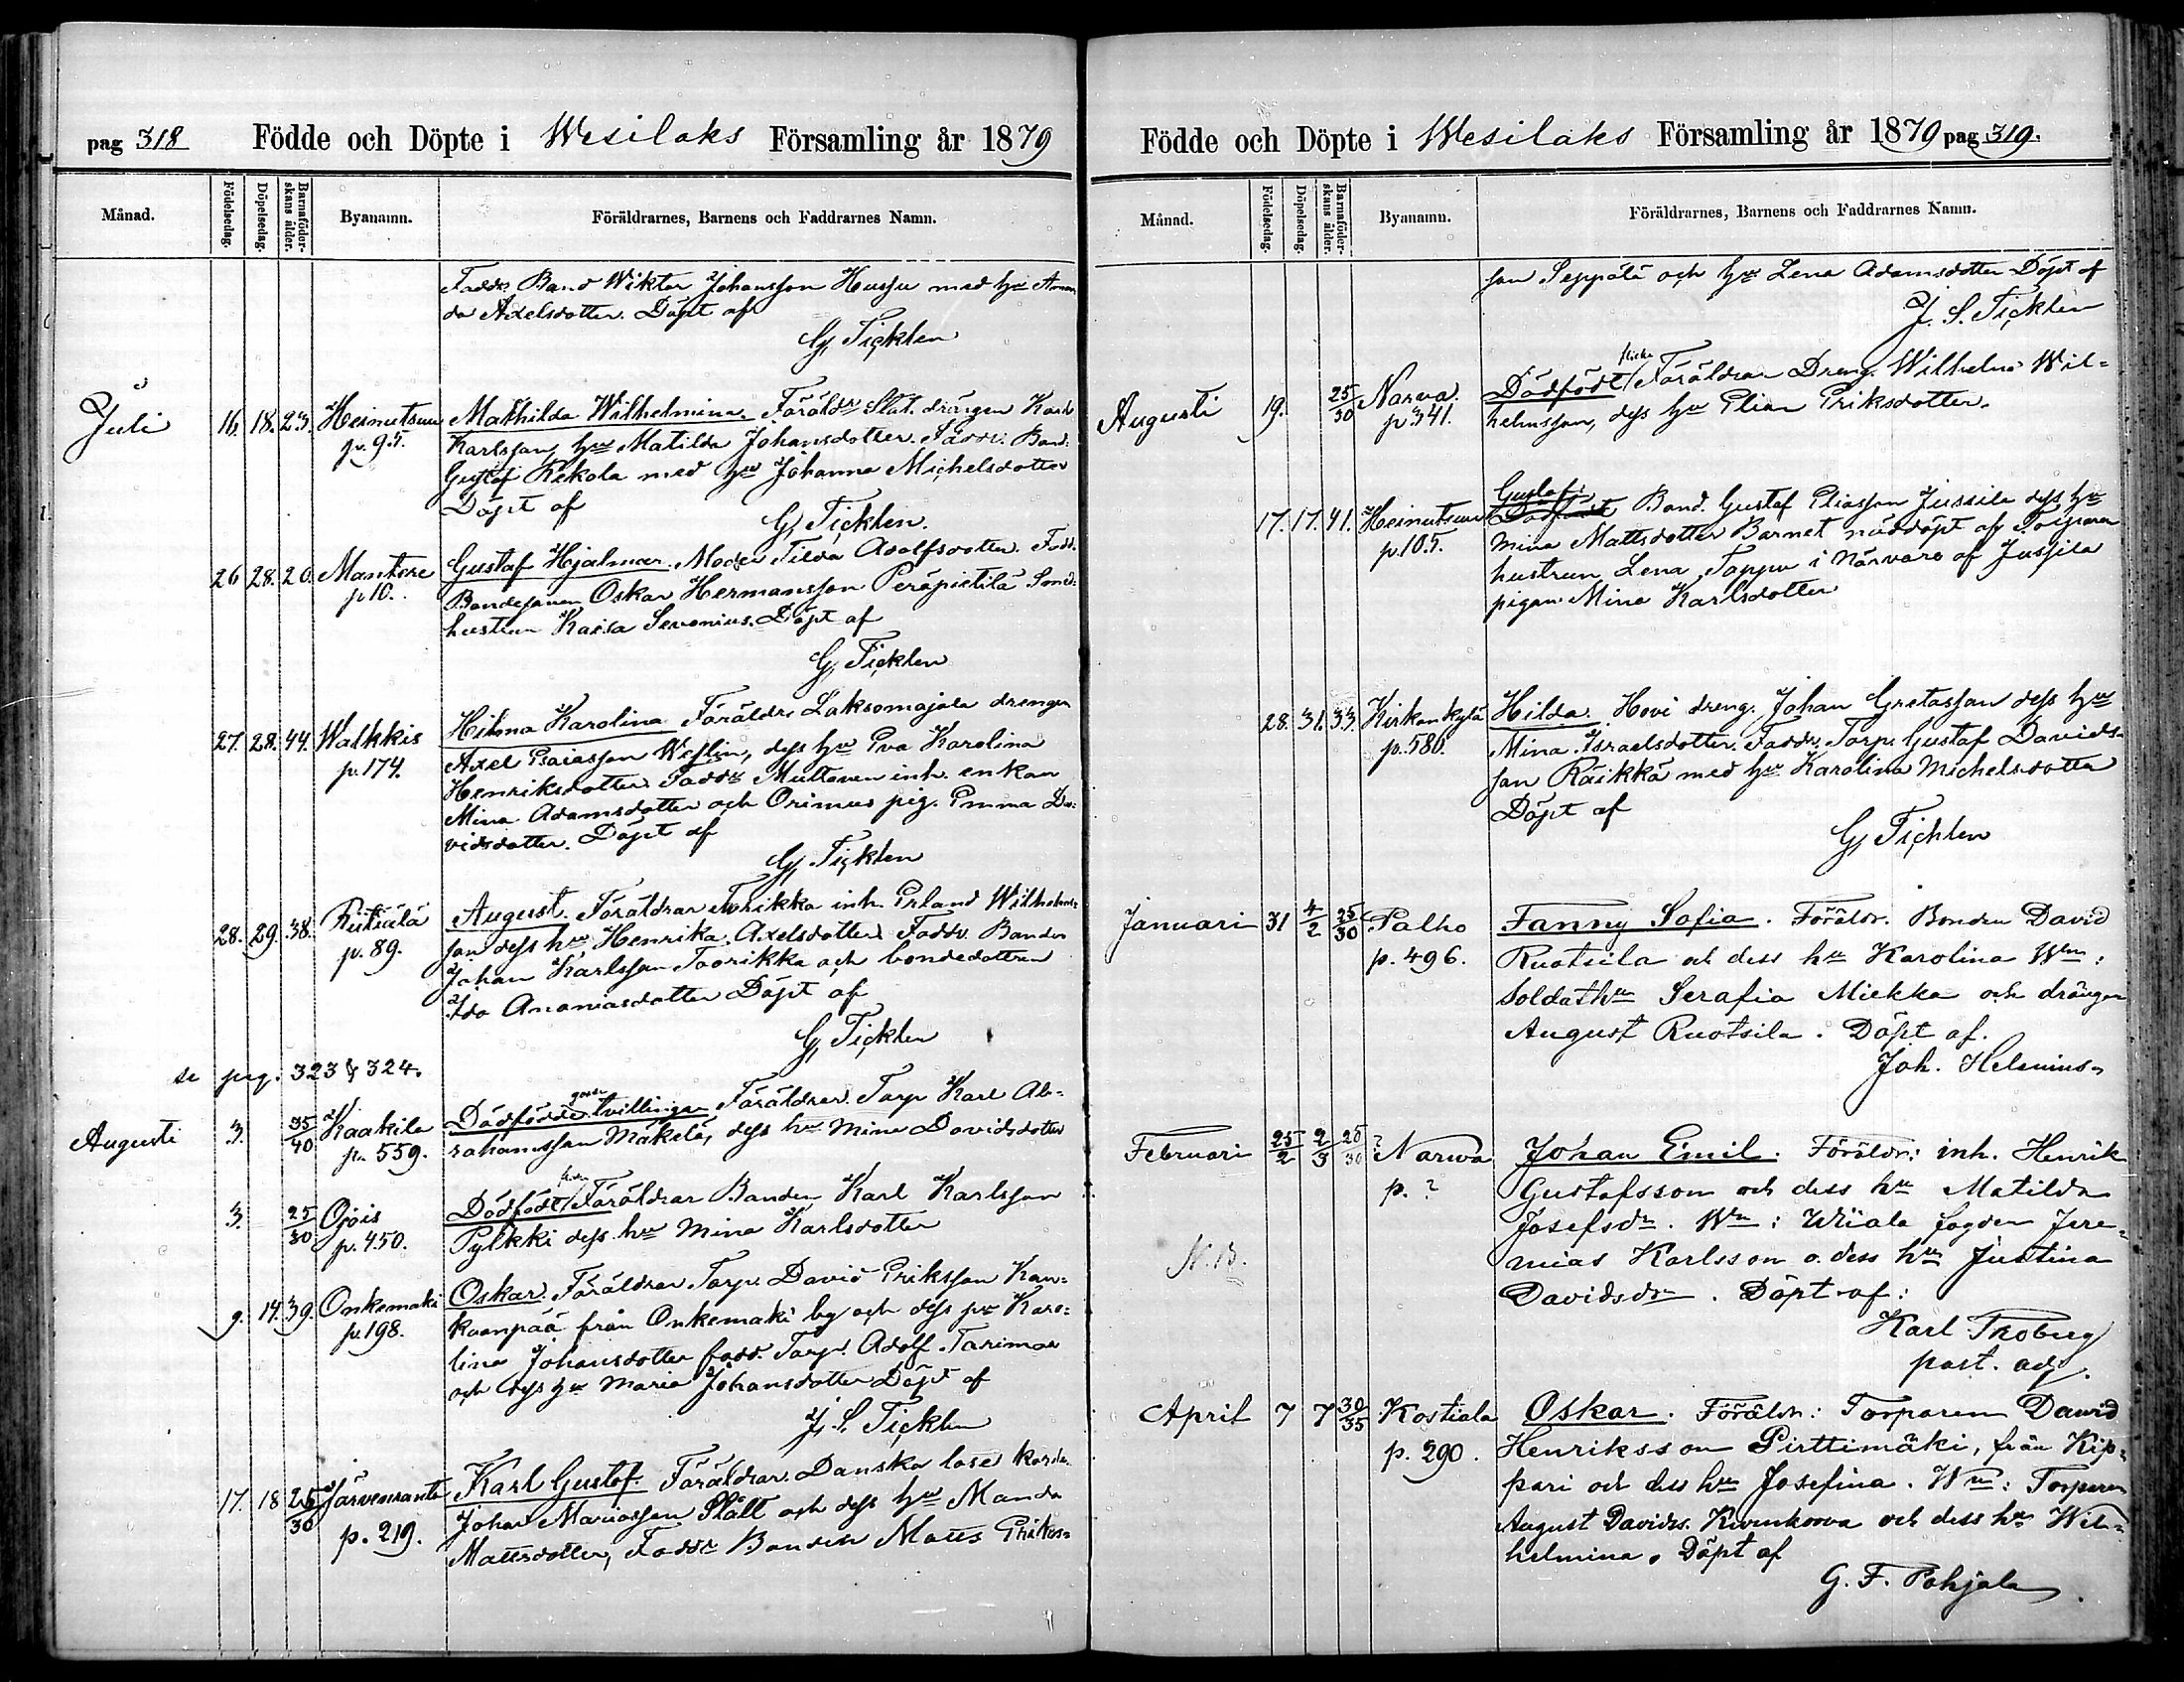 pag 318 Födde och Döpte i Wesilaks Församling år 1879
Månad. Födelsedag. Döpelsedag. Barnaföderskans ålder. Byanamn. Föräldrarnes, Barnens och Faddrarnes Namn.
Faddr. Band Wiktor Johansson Hussu med hu Aman
da Axelsdotter. Döpt af
G, Ticklen
Juli 16. 18. 23. Heinutsuu Mathilda Wilhelmina. Föräldr Stat. drängen Karl
p. 95. Karlsson, hu Matilda Johansdotter. Faddr. Band:
Gustaf Rekola med hu Johanna Michelsdotter
Döpt af
G, Ticklen.
26 28. 20. Mantere Gustaf Hjalmar. Moder Tilda Adolfsdotter. Fadd.
p 10. Bondesonen Oskar Hermansson Peräpietilä Smed.
hustrun Kaisa Sevonius. Döpt af
G, Ticklen
27. 28. 44. Walkkis Hilma Karolina Föräldr. Laksomajala drengen
p. 174. Axel Esaiasson Weslin, dess hu Eva Karolina
Henriksdotter Faddr Multaven inh. enkan
Mina Adamsdotter och Orimus pig. Emma Da-
vidsdotter. Döpt af
G, Ticklen
28. 29. 38. Riitiälä August. Föräldrar inh. Erland Wilhelms-
p. 89. son dess hu Henrika Axelsdotter Faddr. Bonden
Johan Karlsson Toorikka och bondedottren
Ida Ananiasdotter Döpt af
G, Ticklen
se pag. 323 & 324.
Augusti 3. 35/40 Kaakila Dödfödde tvillingar Föräldrar Torp Karl Ab-
p. 559. rahamsson Mäkelä, dess hu Mina Davidsdotter
3. 25/30 Ojois Dödfödt Föräldrar Bonden Karl Karlsson
p. 450. Pylkki dess hu Mina Karlsdotter
9. 14. 39. Onkemaki Oskar. Föräldrar Torp. David Eriksson Kan-
p. 198. kaanpää från Onkemaki by och dess hu Karo-
lina Johansdotter fadd. Torp. Adolf Tarimaa
och dess hu Maria Johansdotter Döpt af
J. S. Ticklen
17. 18 25/30 Järvenranta Karl Gustaf. Föräldrar Danska lose karlen
p. 219. Johan Mariasson Slätt och dess hu Manda
Mattsdotter, Faddr Bonden Matts Eriks-
Födde och Döpte i Wesilaks Församling år 1879 pag 319.
Månad. Födelsedag. Döpelsedag. Barnaföderskans ålder. Byanamn. Föräldrarnes, Barnens och Faddrarnes Namn.
son Seppälä och hu Lena Adamsdotter Döpt af
J. S. Ticklen
flicka
Augusti 19. 25/30 Narva. Dödfödt Föräldrar Dreng. Wilhelm Wil-
p 341. helmsson, dess hu Elina Eriksdotter.
Gustaf
17. 17. 41. Heinutsuu Band. Gustaf Eliasson Jussila dess hu
p. 105. Mina Mattsdotter Barnet nöddöpt af Torparen
hustrun Lena Tappu i Närvaro af Jussila
pigan Mina Karlsdotter
28. 31. 33. Kirkonkylä Hilda. Hovi dreng. Johan Gretasson dess hu
p. 580. Mina Israelsdotter. Faddr. Torp. Gustaf Davids-
son Räikkä med hu Karolina Michelsdotter
Döpt af
G, Ticklen
Januari 31 4/2 25/30 Palho Fanny Sofia. Föräldr. Bonden David
p. 496. Ruotsila och dess hu Karolina Wn:
Soldathn Serafia Miekka och drängen
August Ruotsila. Döpt af.
Joh. Helenius.
Februari 25/2 2/3 25/30 ? Narwa Johan Emil. Föräldr: inh. Henrik
p. ? Gustafsson och dess hu Matilda
Josefsdr. Wn: Wiiala fogden Jere-
N.B. mias Karlsson o. dess hn Justina
Davidsdr. Döpt af:
Karl Froberg
past. adj.
April 7 7 30/35 Kostiala Oskar. Föräldr: Torparen David
p. 290. Henriksson Pirttimäki, från Kip-
pari och dess hn Josefina. Wn: Torparen
August Davids. Kivenkorva och dess hn Wil-
helmina. Döpt af
G. F. Pohjala.